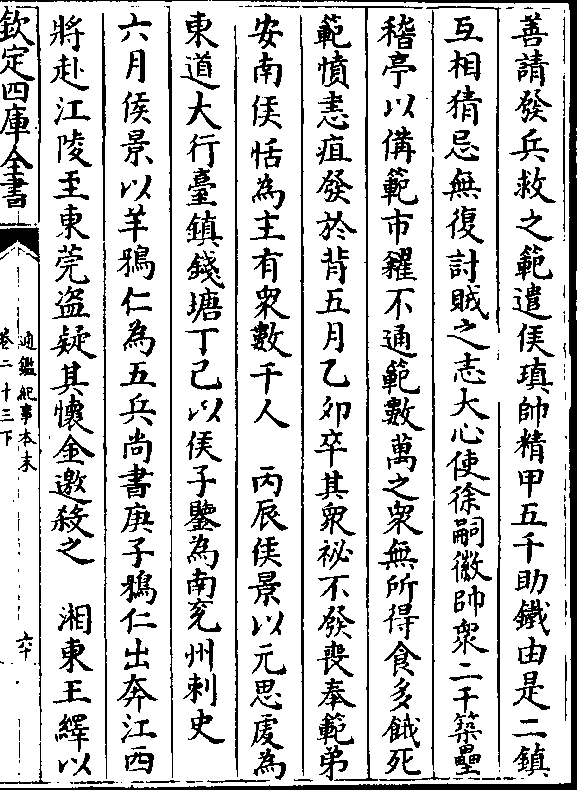 善請發兵救之範遣侯瑱帥精甲五千助鐵由是二鎮
互相猜忌無復討賊之志大心使徐嗣徽帥衆二千築壘
稽亭以備範市糴不通範數萬之衆無所得食多餓死
範憤恚疽發於背五月乙卯卒其衆祕不發喪奉範弟
安南侯恬為主有衆數千人　丙辰侯景以元思虔為
東道大行臺鎮錢塘丁巳以侯子鑒為南兖州刺史
六月侯景以羊鴉仁為五兵尚書庚子鴉仁出奔江西
將赴江陵至東莞盜疑其懷金邀殺之　湘東王繹以
欽定四庫全書
通鑑紀事本末
卷二十三下
六十